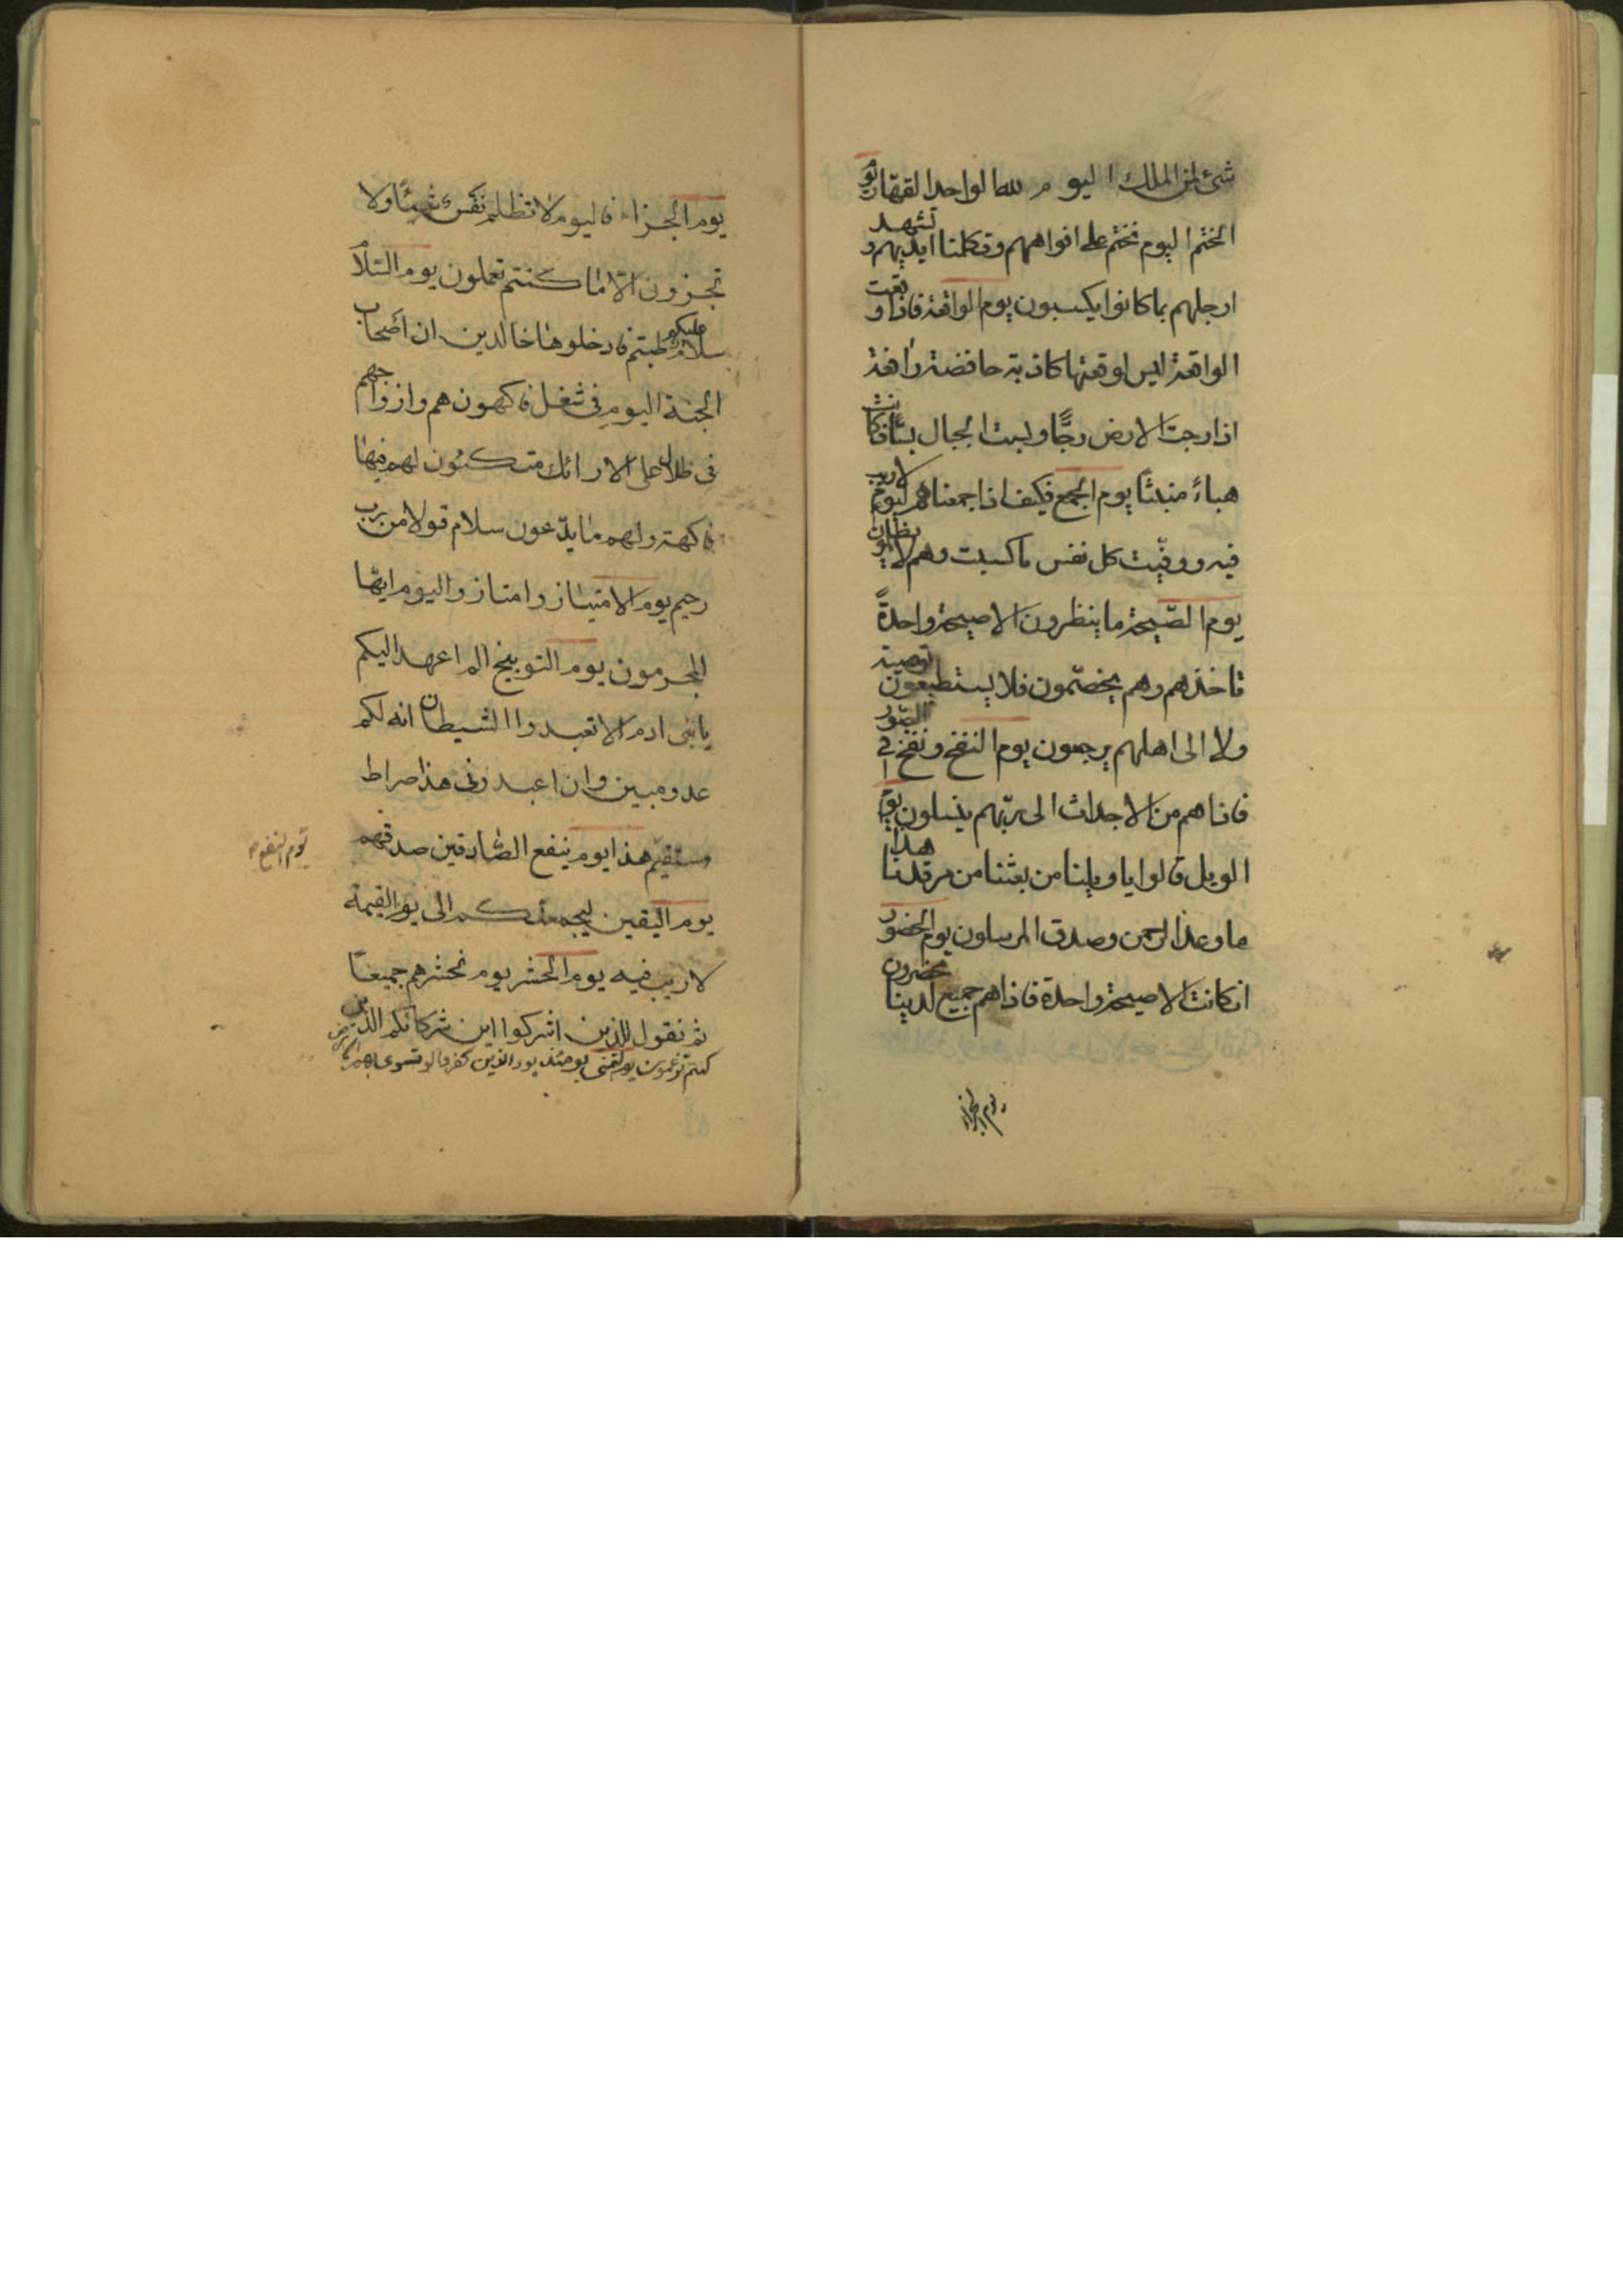 شئ لمن الملك اليوم لله الواحد القهار يوم
الختم اليوم نختم على افواههم وتكلمنا ايديهم و تشهد
ارجلهم بما كانوا يكسبون يوم الواقعة فاذا وقعت
الواقعة ليس لوقعتها كاذبة خافضة رافعة
اذا رجت الارض رجًّا وبست الجبال بسًّا فكانت
هباءً منبثًا يوم الجمع فكيف اذا جمعناهم ليوم لاريب
فيه ووفّيت كل نفس ما كسبت وهم لا يظلمون
يوم الصّيحة ما ينظرون الا صيحة واحدةً
تاخذهم وهم يخصّمون فلا يستطيعون توصية
ولا الى اهلهم يرجعون يوم النفخ ونفخ في الصّور
فاذا هم من الاجداث الى ربّهم ينسلون يوم
الويل قالوا يا ويلنا من بعثنا من مرقدنا هذا
ما وعد الرحمن وصدق المرسلون يوم الحضور
انكانت الا صيحة واحدة فاذا هم جميع لدينا محضرون
يوم الجزاء
يوم الجزاء فاليوم لا تظلم نفس شيئًا ولا
تجزون الّا ما كنتم تعملون يوم السّلام
سلام عليكم طبتم فادخلوها خالدين ان اصحاب
الجنة اليوم في شغل فاكهون هم وازواجهم
في ظلال على الارائك متكئون لهم فيها
فاكهة ولهم ما يدّعون سلام قولا من رب
رحيم يوم الامتياز وامتازوا اليوم ايّها
المجرمون يوم التوبيخ الم اعهد اليكم
يا بني ادم الا تعبدوا الشيطان انه لكم
عدو مبين وان اعبدوني هذا صراط
مستقيم هذا يوم ينفع الصّادقين صدقهم
يوم النفع
يوم اليقين ليجمعنكم الى يوم القيمة
لا ريب فيه يوم الحشر يوم نحشرهم جميعًا
ثم نقول للذين اشركوا اين شركائكم الذين
كنتم تزعمون يوم التمني يومئذ يود الذين كفروا لو تسوى بهم الارض